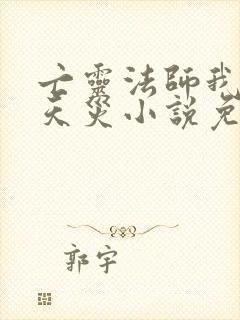 亡靈法師我
天災小說免
郭宇